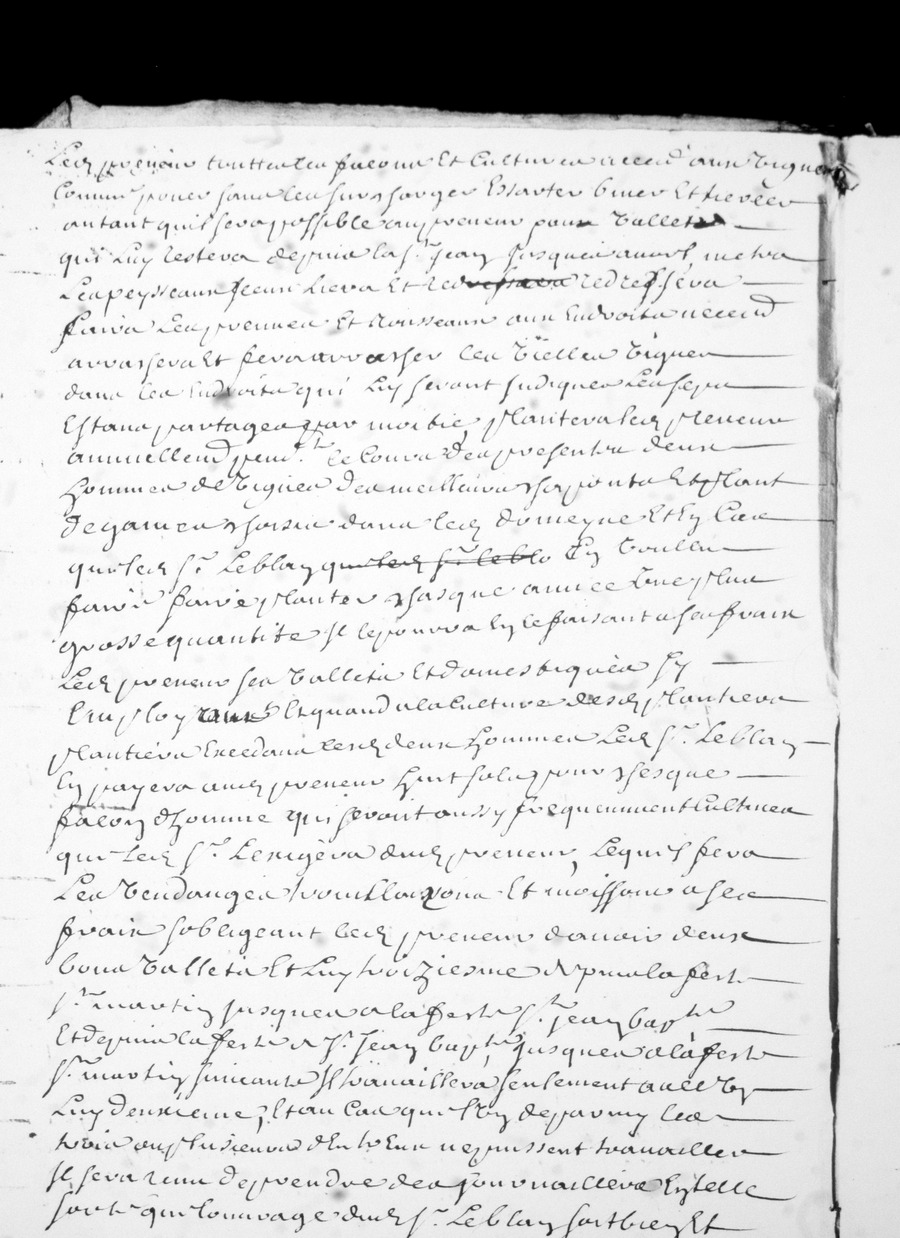 Led preneur touttes les façons Et Cultures necess aux Vignes
Comme pouer sans les surcharger Essarter biner Et tierсer
autant quil sera possible aupreneur pour Vallets
qui Luy restera depuis la St Jean jusques a metra
Les peysseaux Liera Et redressera
faira Les prennes Et Rousseaux aux Endroits necess
arrassera Et fera arrasher les Vielles Vignes
dans les Endroits qui Luy seront Indiques Les seps
Estans partages par moitie, plantera led preneur
annuellemt pendt le Cours des presentes deux
hommes de Vignes des meilleurs et plant
de games choisis dans led domeyne Et En Cas
que led Sr Leblan que led Sr leblo En Voullu
faire faire planter chasque année Une plus
grosse quantité Il le pourra En le faisant a ses fraix
Led preneur ses Valletis Et domestiques Sy
Employ Et quand a la Culture desd plantiers
plantiers Excedans lesd deux hommes Led Sr Leblan
En payera aud preneur huit sols pour chesque
façon d'homme qui seront aussy frequemment Cultives
que led Sr Lexigera dud preneur, Lequel fera
Les Vendanges Et moissons a ses
fraix sobligeant led preneur d'auoir deux
bons Valletis Et Luy troiziesme depuis la feste
St martin jusques a la feste St Jean bapte
Et depuis la feste de St Jean bapte jusques a la feste
St martin suiuante Il trauaillera seulement auec Un
Luy deuxieme, Et au Cas quil Un de parmy les
trois ou plusieurs d'Entr'Eux ne puissent trauailler
Il sera tenu de prendre des journailliers En telle
sorte que l'ouurage dud Sr Leblan soit bien Et